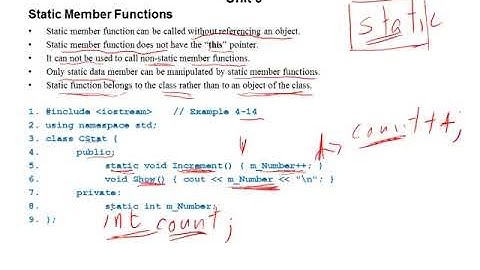 Static Member Functions
static
• Static member function can be called without referencing an object.
• Static member function does not have the "this" pointer.
• It can not be used to call non-static member functions.
• Only static data member can be manipulated by static member functions.
• Static function belongs to the class rather than to an object of the class.
1. #include <iostream> // Example 4-14
2. using namespace std;
3. class CStat {
4. public:
count++;
5. static void Increment() { m_Number++; }
6. void Show() { cout << m_Number << "\n"; }
7. private:
8. static int m_Number;
9. };
int count;